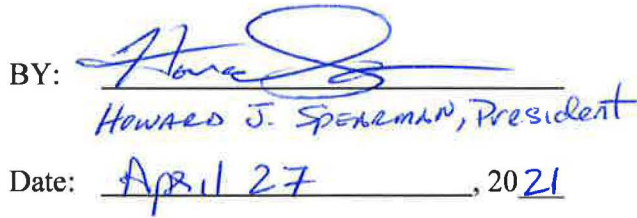 BY:
HOWARD J. SPEARMAN, President
Date: April 27, 2021